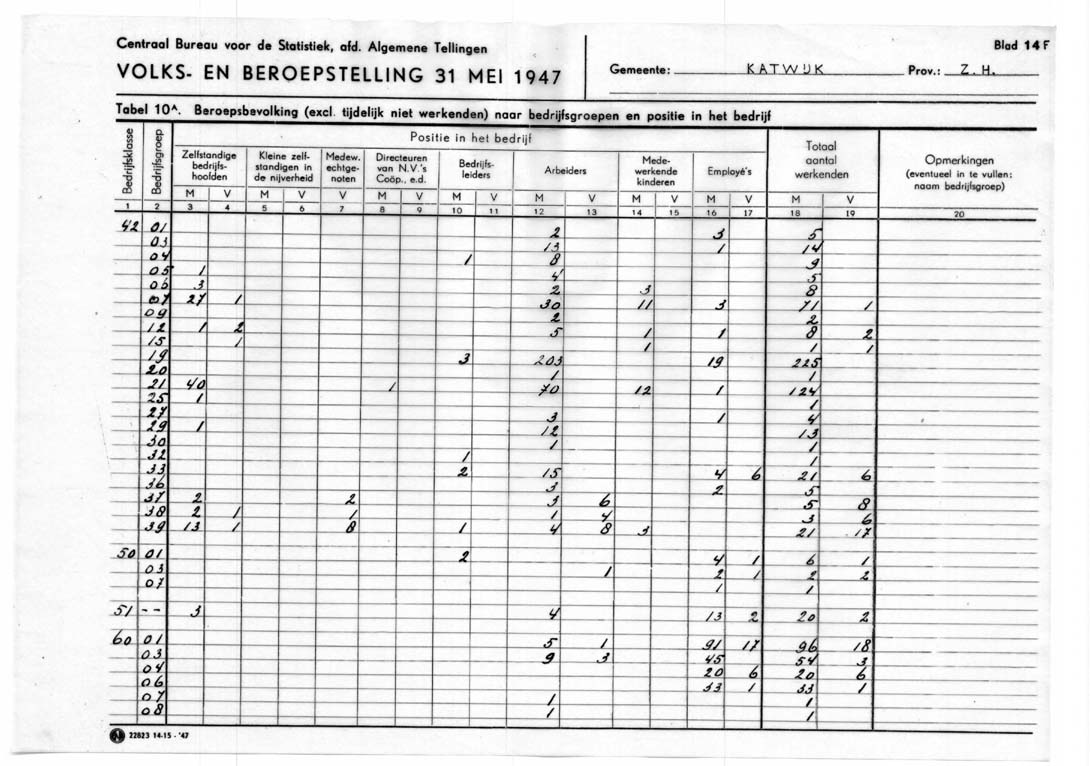 Centraal Bureau voor de Statistiek, afd. Algemene Tellingen
Blad 14 F
VOLKS- EN BEROEPSTELLING 31 MEI 1947
Gemeente: KATWIJK Prov.: Z.H.
Tabel 10A. Beroepsbevolking (excl. tijdelijk niet werkenden) naar bedrijfsgroepen en positie in het bedrijf
Bedrijfsklasse Bedrijfsgroep Positie in het bedrijf Totaal aantal werkenden Opmerkingen (eventueel in te vullen: naam bedrijfsgroep)
Zelfstandige bedrijfs-hoofden Kleine zelf-standigen in de nijverheid Medew. echtge-noten Directeuren van N.V.'s Coöp., e.d. Bedrijfs-leiders Arbeiders Mede-werkende kinderen Employé's
M V M V V M V M V M V M V M V M V
1 2 3 4 5 6 7 8 9 10 11 12 13 14 15 16 17 18 19 20
42 01 2 3 5
03 13 1 14
04 1 8 9
05 1 4 5
06 3 2 3 8
07 27 1 30 11 3 71 1
09 2 2
12 1 2 5 1 1 8 2
15 1 1 1 1
19 3 203 19 225
20 1 1
21 40 1 70 12 1 124
25 1 1
27 3 1 4
29 1 12 13
30 1 1
32 1 1
33 2 15 4 6 21 6
36 3 2 5
37 2 2 3 6 5 8
38 2 1 1 1 4 3 6
39 13 1 8 1 4 8 3 21 17
50 01 2 4 1 6 1
03 1 2 1 2 2
07 1 1
51 -- 3 4 13 2 20 2
60 01 5 1 91 17 96 18
03 9 3 45 54 3
04 20 6 20 6
06 33 1 33 1
07 1 1
08 1 1
22823 14-15 - '47